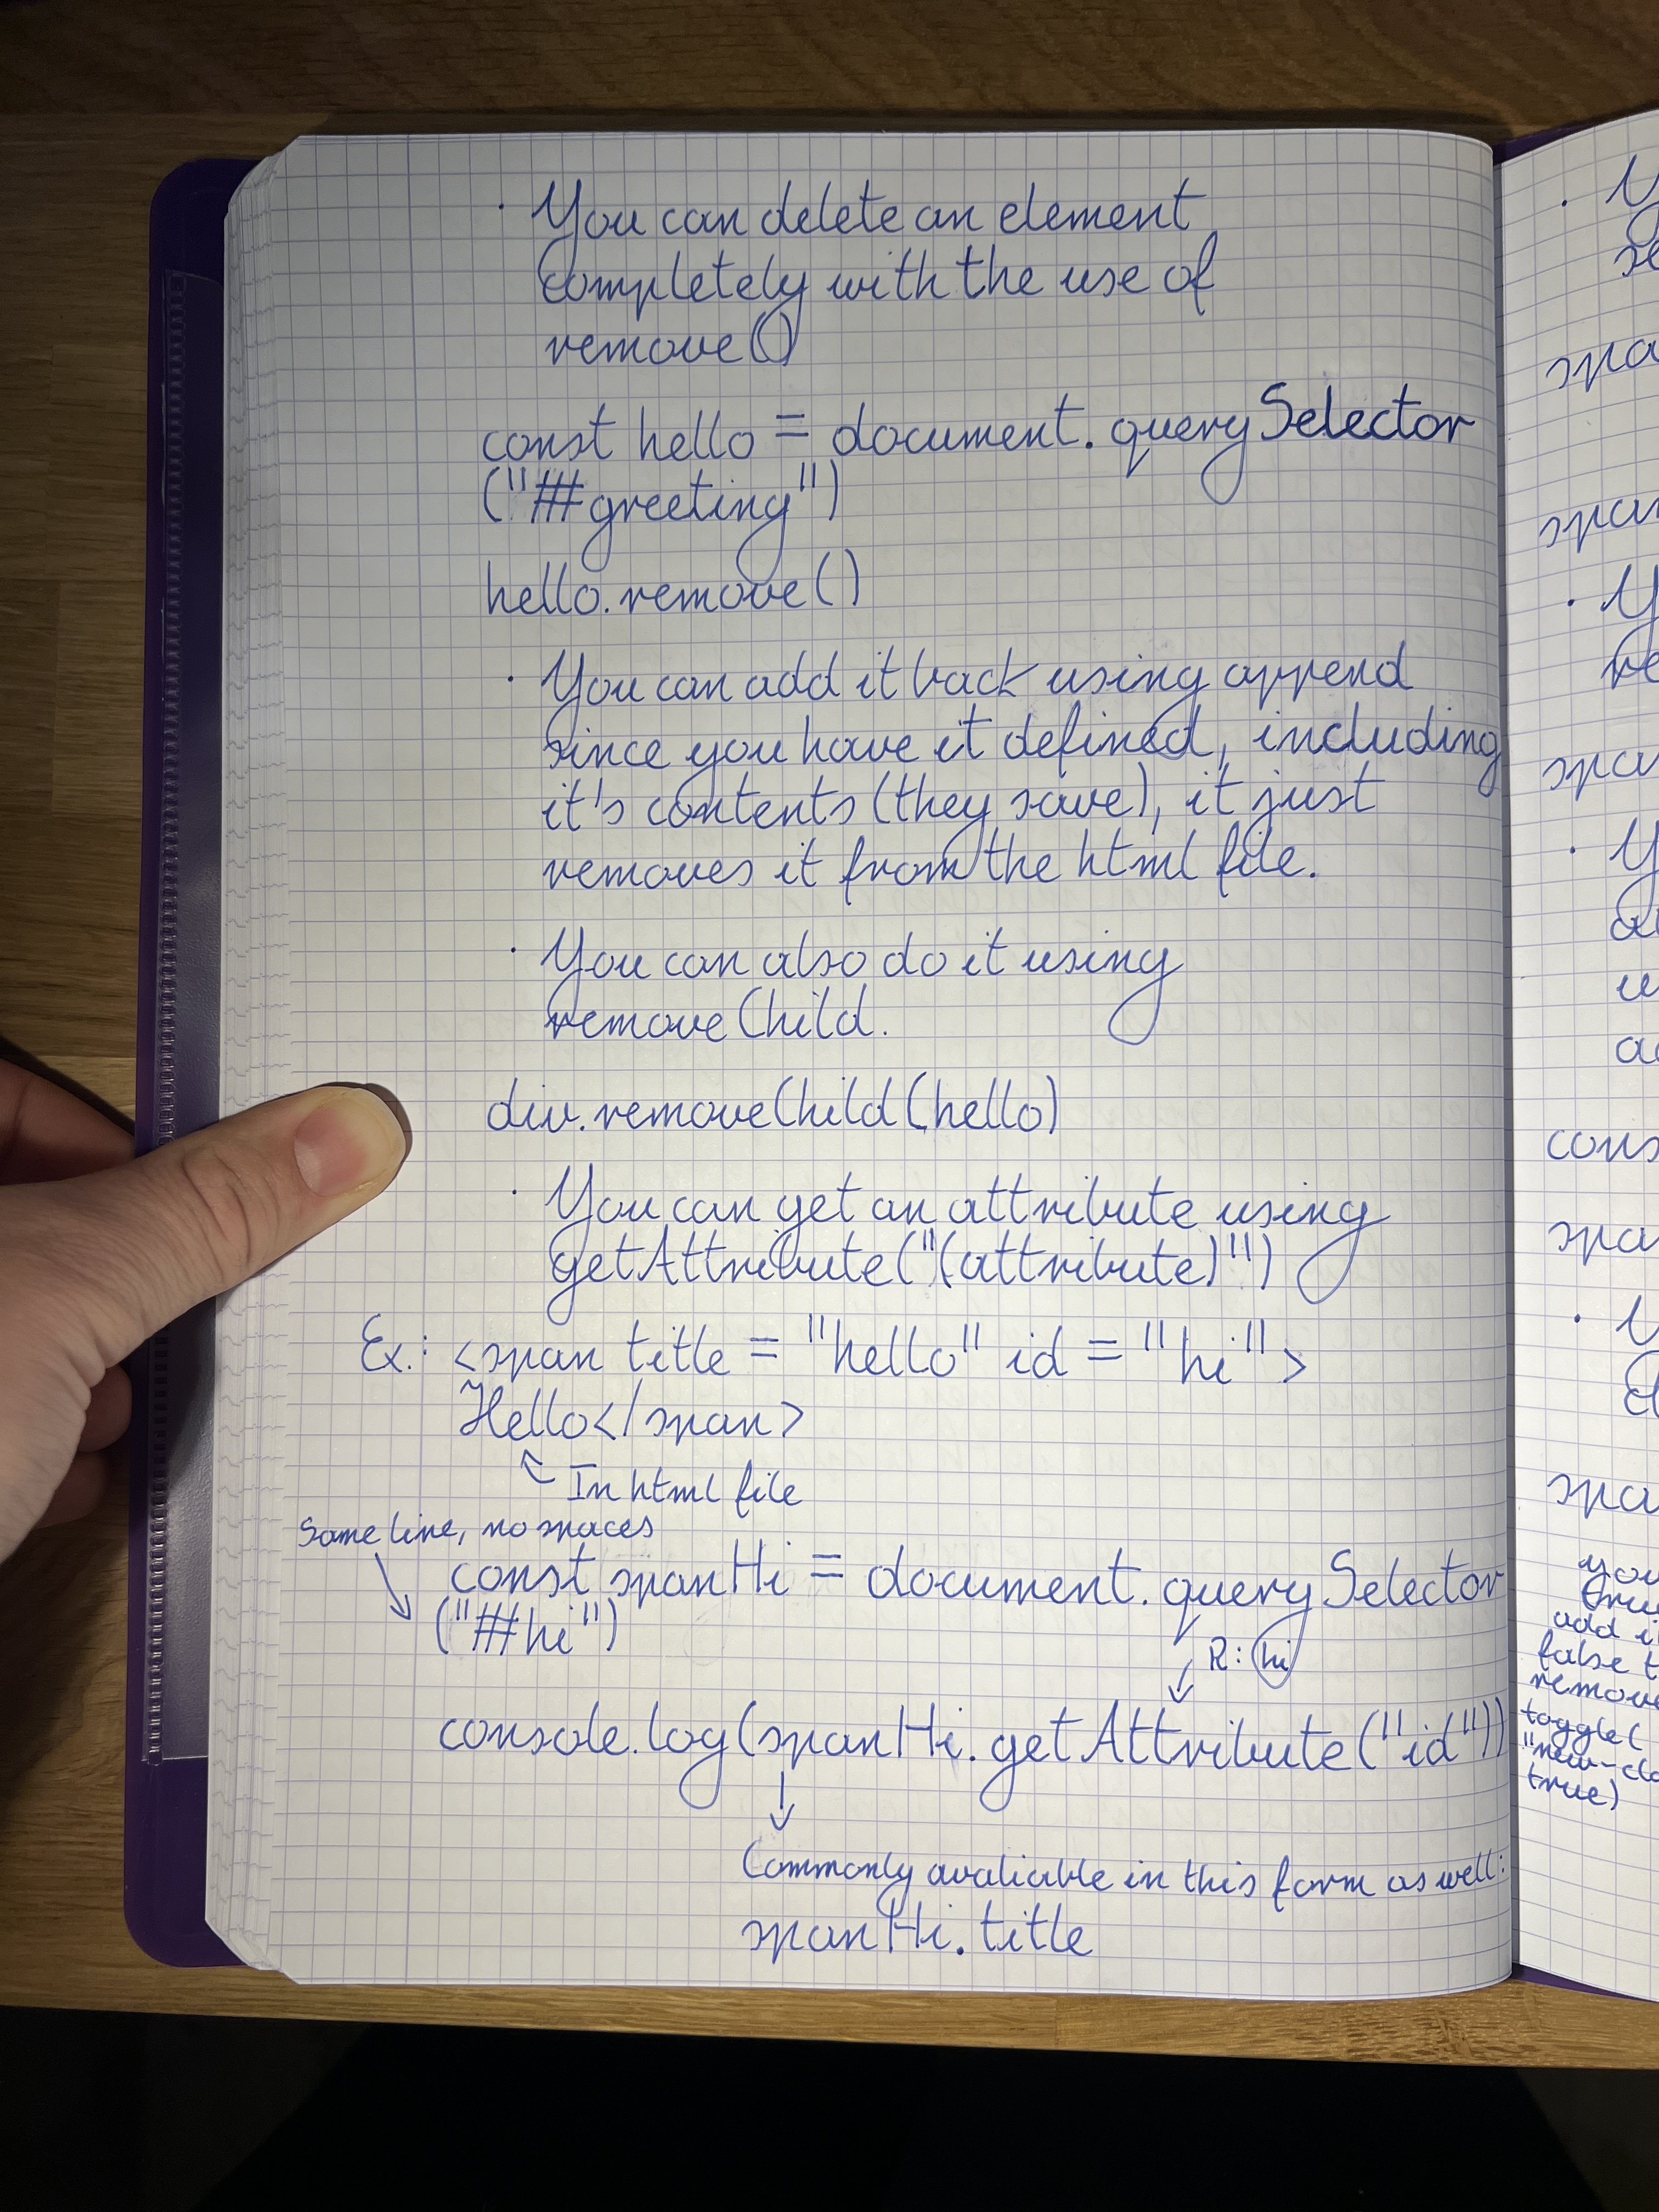 · You can delete an element
completely with the use of
remove()
const hello = document.querySelector
("#greeting")
hello.remove()
· You can add it back using append
since you have it defined, including
it's contents (they save), it just
removes it from the html file.
· You can also do it using
removeChild.
div.removeChild(hello)
· You can get an attribute using
getAttribute("(attribute)")
Ex.: <span title = "hello" id = "hi">
Hello</span>
In html file
Same line, no spaces
const spanHi = document.querySelector
("#hi")
R: hi
console.log(spanHi.getAttribute("id"))
Commonly avaliable in this form as well:
spanHi.title
add i
false t
remove
toggle(
true)